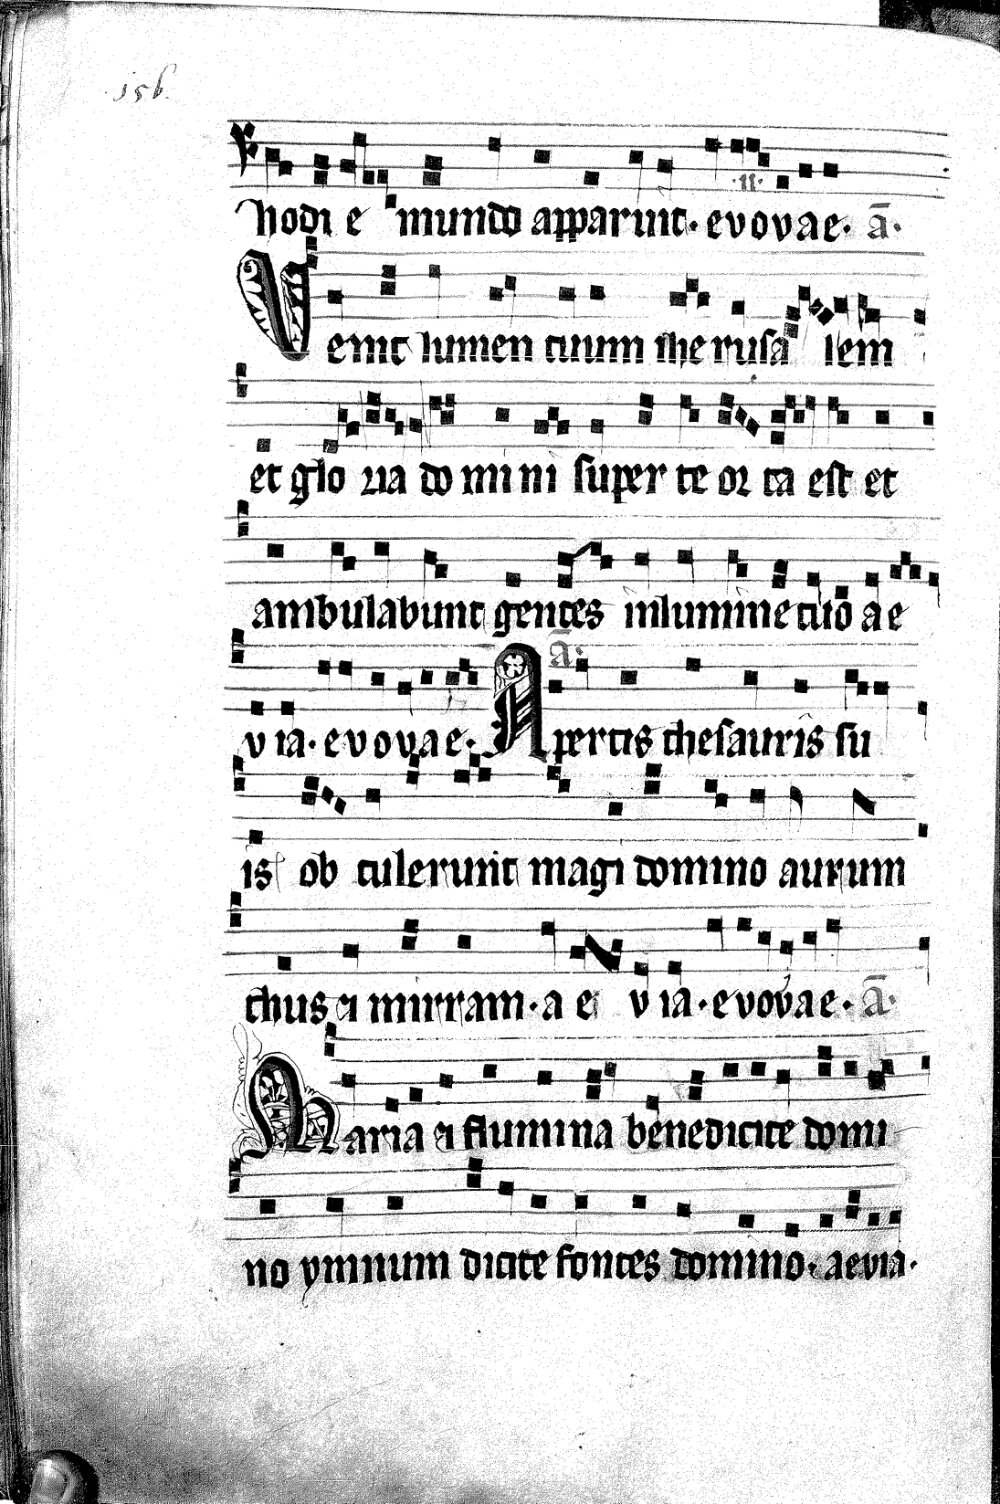 156.
hodi e mundo apparuit. evovae. a.
.ii.
Venit lumen tuum iherusa lem
et glo ria do mi ni super te or ta est et
ambulabunt gentes inlumine tuo ae
a.
v ia. evovae. Apertis thesauris su
is ob tulerunt magi domino aurum
thus et mirram. a e v ia. evovae. a.
Maria et flumina benedicite domi
no ymnum dicite fontes domino. aevia.